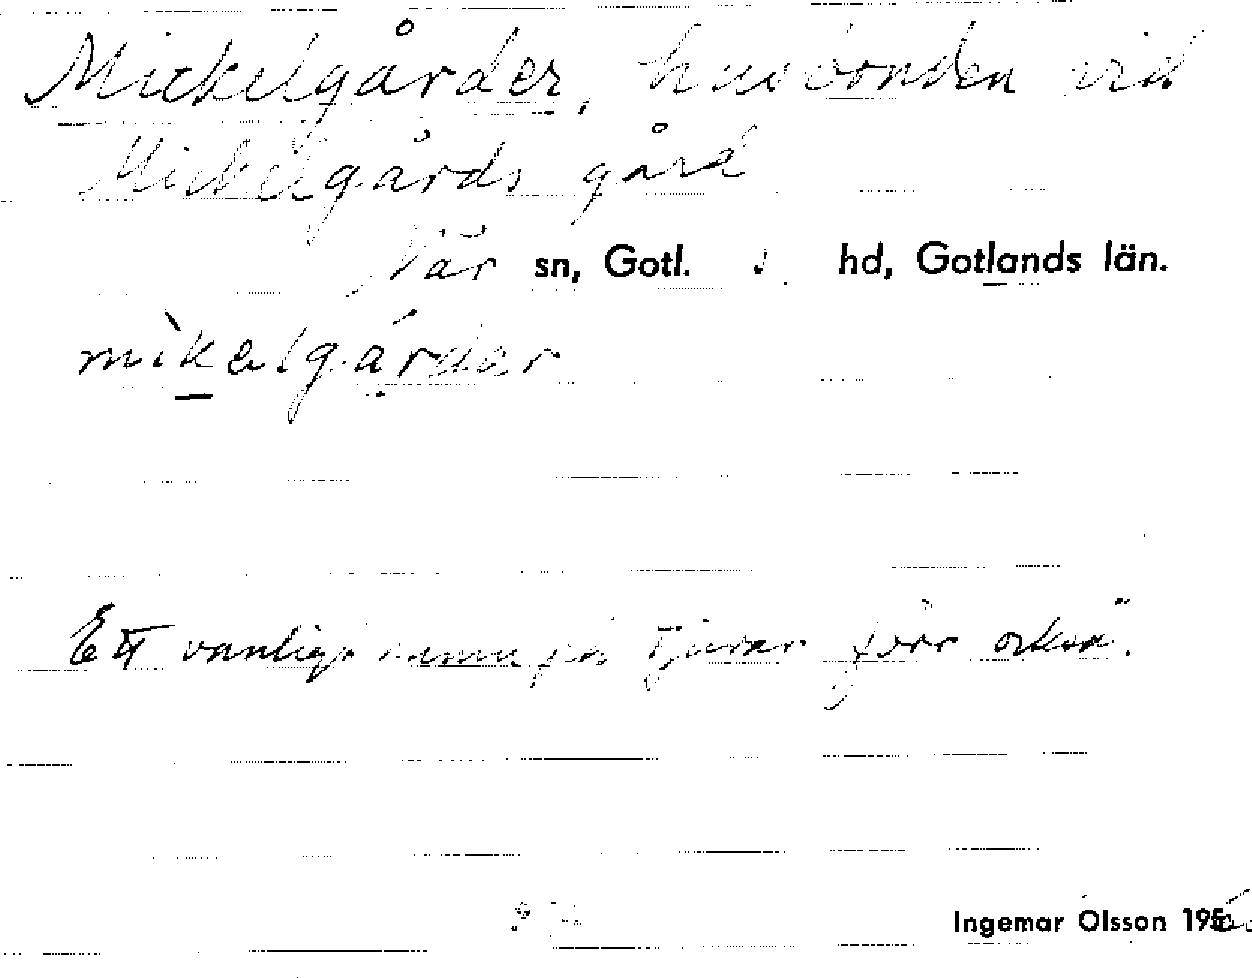 Mickelgårder, husbonden vid
Mickelgårds gård
När sn, Gotl. s hd, Gotlands län.
mìkalgárdar
Ett vanligt namn på tjurar förr också.
Ingemar Olsson 195